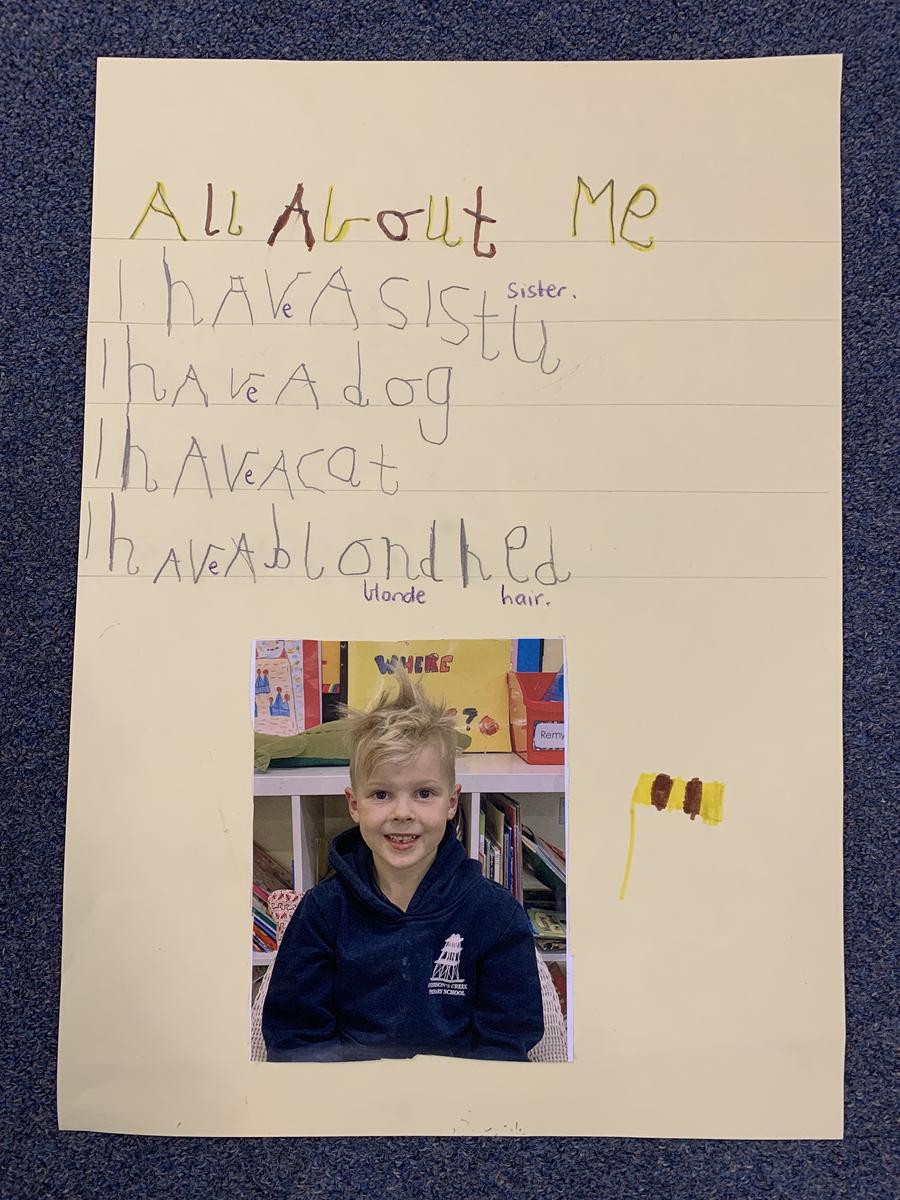 All About Me
I hAVe A sistu
sister.
I hAVe A dog
I hAVe A cat
I hAVe A blond hed
blonde hair.
WHERE
?
Remy
PRIMARY SCHOOL